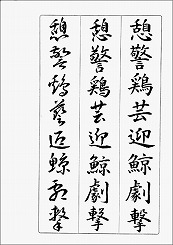 憩警鶏芸迎鯨劇撃
憩警鶏芸迎鯨劇撃
憩警鶏藝迎鯨劇撃